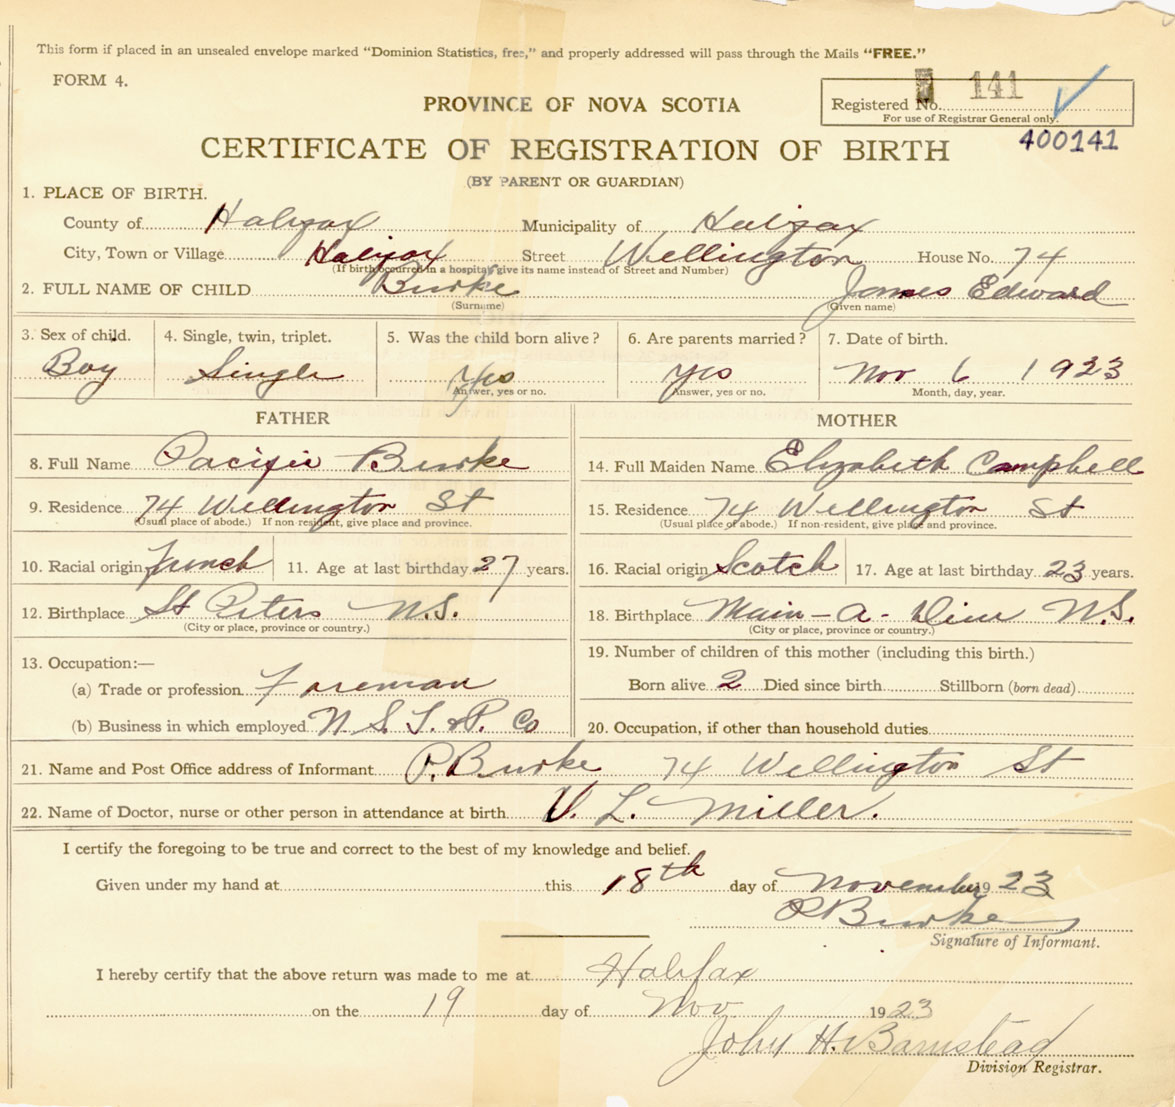 This form if placed in an unsealed envelope marked "Dominion Statistics, free," and properly addressed will pass through the Mails "FREE."
FORM 4.
Registered No. 141
PROVINCE OF NOVA SCOTIA
For use of Registrar General only.
400141
CERTIFICATE OF REGISTRATION OF BIRTH
(BY PARENT OR GUARDIAN)
1. PLACE OF BIRTH.
County of Halifax Municipality of Halifax
City, Town or Village Halifax Street Wellington House No. 74
(If birth occurred in a hospital give its name instead of Street and Number)
2. FULL NAME OF CHILD Burke James Edward
(Surname) (Given name)
3. Sex of child. 4. Single, twin, triplet. 5. Was the child born alive? 6. Are parents married? 7. Date of birth.
Boy Single Yes Yes Nov 6 1923
Answer, yes or no. Answer, yes or no. Month, day, year.
FATHER MOTHER
8. Full Name Pacific Burke 14. Full Maiden Name Elizabeth Campbell
9. Residence 74 Wellington St 15. Residence 74 Wellington St
(Usual place of abode.) If non resident, give place and province. (Usual place of abode.) If non-resident, give place and province.
10. Racial origin French 11. Age at last birthday 27 years. 16. Racial origin Scotch 17. Age at last birthday 23 years.
12. Birthplace St Peters N.S. 18. Birthplace Main-a-Dieu N.S.
(City or place, province or country.) (City or place, province or country.)
13. Occupation:— 19. Number of children of this mother (including this birth.)
(a) Trade or profession Foreman Born alive 2 Died since birth Stillborn (born dead)
(b) Business in which employed N.S.T. & P. Co 20. Occupation, if other than household duties
21. Name and Post Office address of Informant P. Burke 74 Wellington St
22. Name of Doctor, nurse or other person in attendance at birth V. L. Miller.
I certify the foregoing to be true and correct to the best of my knowledge and belief.
Given under my hand at this 18th day of November 1923
P Burke
Signature of Informant.
I hereby certify that the above return was made to me at Halifax
on the 19 day of Nov 1923
John H. Barnstead
Division Registrar.